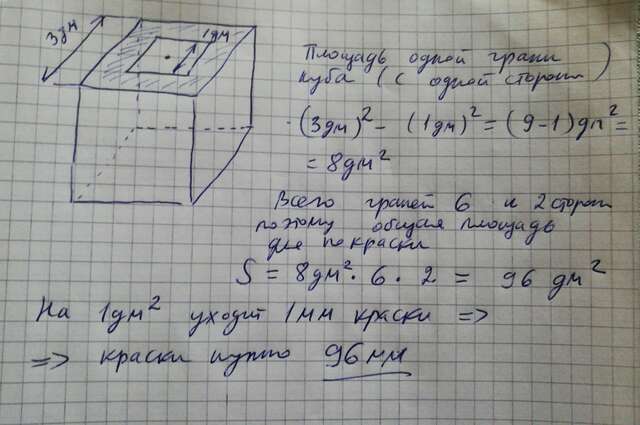 3дм
1дм
Площадь одной грани
куба (с одной стороны)
(3дм)² - (1дм)² = (9-1)дм² =
= 8дм²
Всего граней 6 и 2 сторон
поэтому общая площадь
для покраски
S = 8дм² · 6 · 2 = 96 дм²
На 1дм² уходит 1мм краски =>
=> краски нужно 96мм